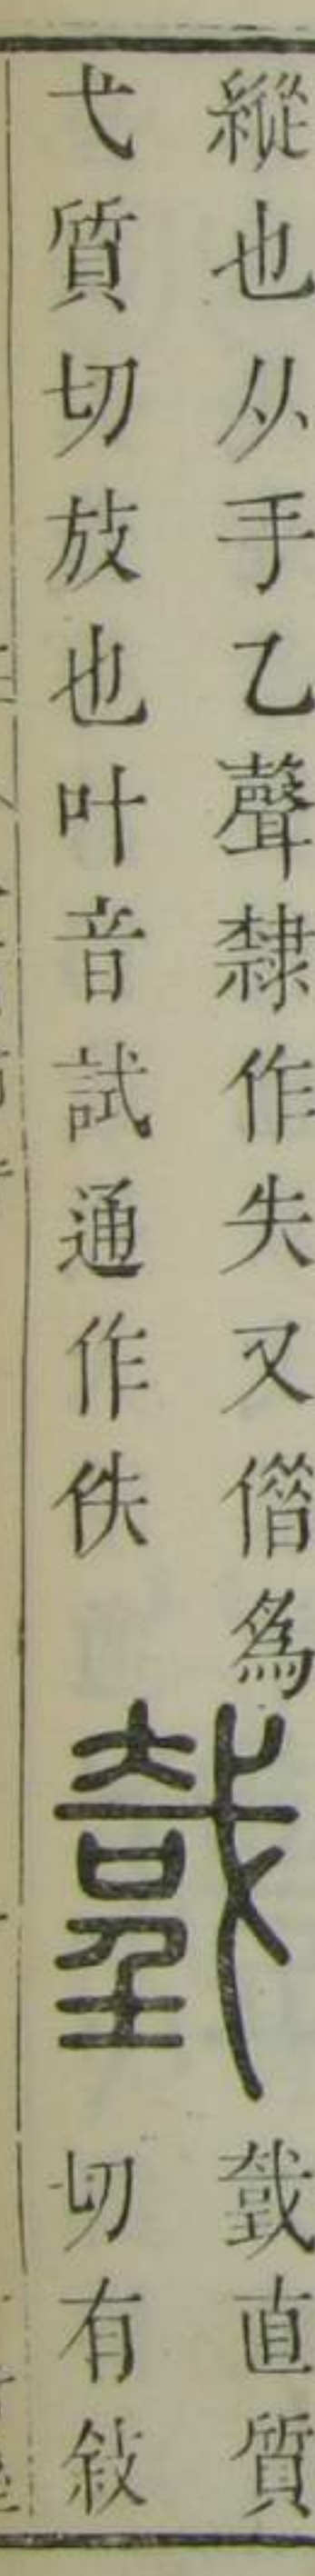 縱也从手乙聲隸作失又僭為
弋質切放也叶音試通作佚
直質
切有敍